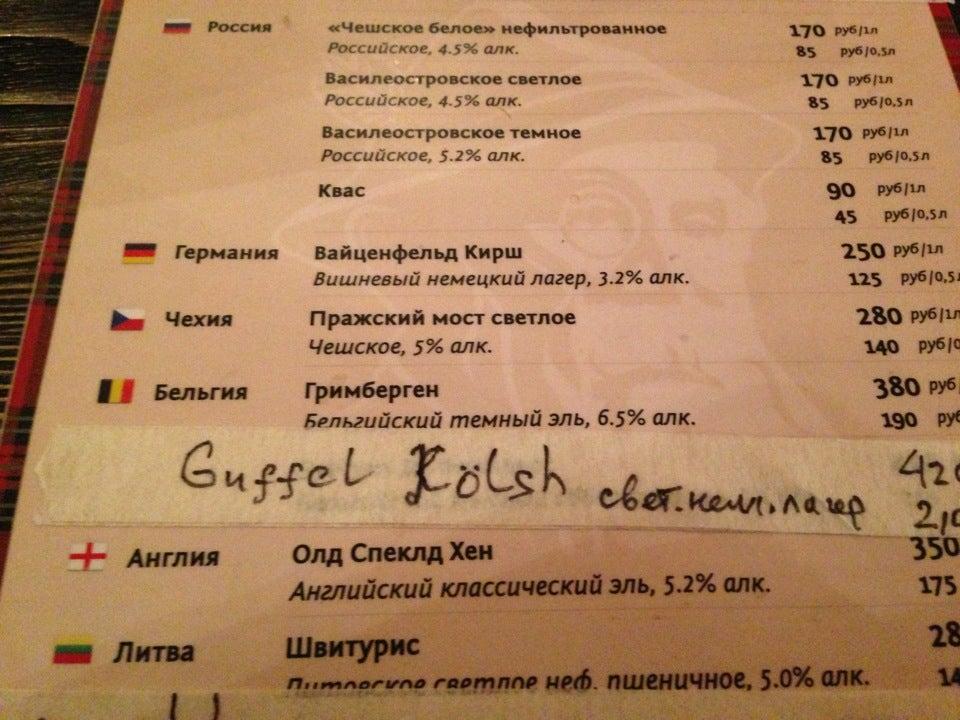 Россия «Чешское белое» нефильтрованное 170 руб/1л
Российское, 4.5% алк. 85 руб/0,5л
Василеостровское светлое 170 руб/1л
Российское, 4.5% алк. 85 руб/0,5л
Василеостровское темное 170 руб/1л
Российское, 5.2% алк. 85 руб/0,5л
Квас 90 руб/1л
45 руб/0,5л
Германия Вайценфельд Кирш 250 руб/1л
Вишневый немецкий лагер, 3.2% алк. 125 руб/0,5
Чехия Пражский мост светлое 280 руб/1л
Чешское, 5% алк. 140 руб/0
Бельгия Гримберген 380 руб/
Бельгийский темный эль, 6.5% алк. 190 руб
Guffel Kölsh свет.нем.лагер 420
210
Англия Олд Спеклд Хен 350
Английский классический эль, 5.2% алк. 175
Литва Швитурис 28
Литовское светлое неф. пшеничное, 5.0% алк. 14